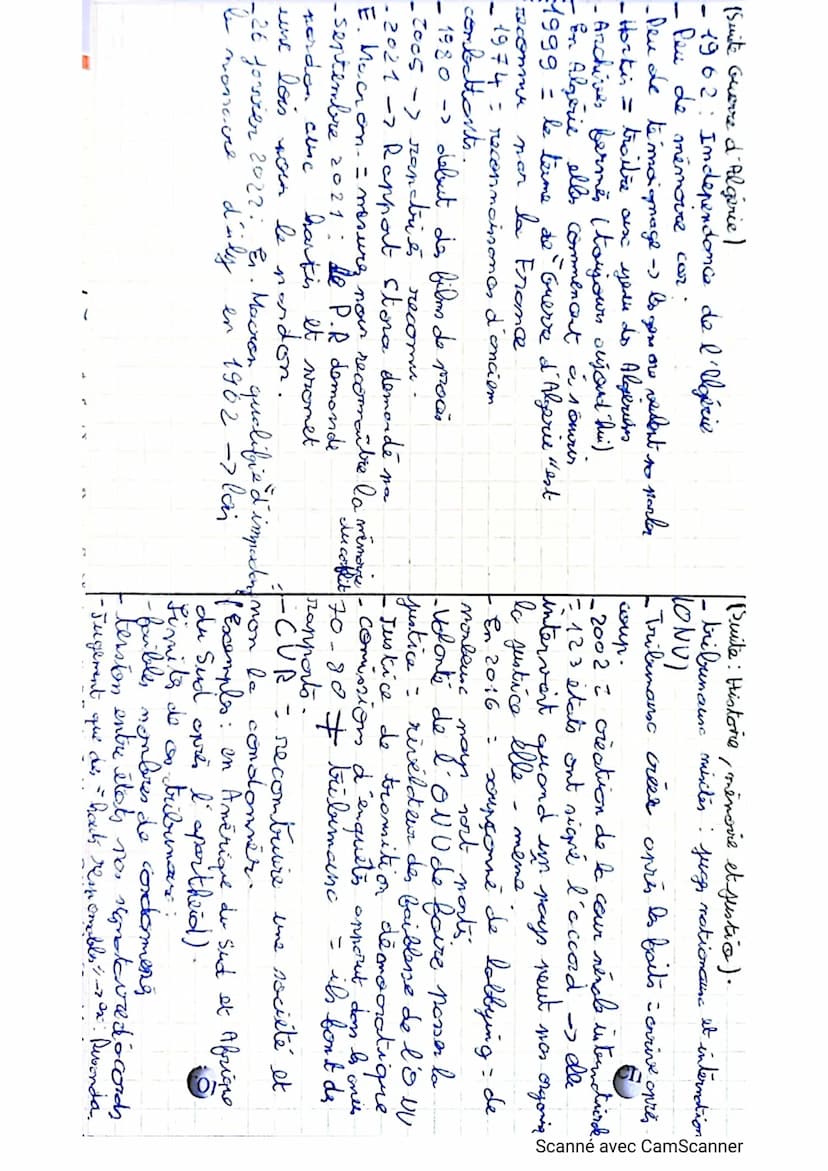 (Suite Guerre d'Algérie)
- 1962 : Independance de l'Algérie
- Peu de mémoire car :
- Peu de témoignage -> les gens ne veulent pas parler
- Harkis = traître aux yeux des Algériens
- Archives fermés (toujours aujourd'hui)
En Algérie elles commencent à s'ouvrir
- 1999 = le terme de "Guerre d'Algérie" est
reconnu par la France
- 1974 = reconnaissances d'anciens
combattants.
- 1980 -> début des films de procès
- 2005 -> rapatriés reconnu.
- 2021 -> Rapport Stora demandé par
E. Macron. = mesures pour reconnaître la mémoire
du conflit
- Septembre 2021 : le P.R demande
pardon aux harkis et promet
une lois sur le pardon.
- 26 janvier 2022 : Em. Macron qualifie d'"impardonnable"
le massacre d'Isly en 1962 -> loi
(Suite : Histoire, mémoire et justice).
- tribunaux mixtes : juges nationaux et internation
(ONU)
- Tribunaux crées après les faits = arrive après
coup.
- 2002 = création de la cour pénale internationale
= 123 états ont signé l'accord -> elle
intervient quand un pays peut pas organiser
la justice elle-même.
- En 2016 = soupçonné de lobbying = de
nombreux pays sont partis
- Volonté de l'ONU de faire passer la
justice = révélateur des faiblesse de l'ONU
- Justice de transition démocratique
- Comissions d'enquêtes apparut dans les années
70-80 ≠ tribunaux = ils font des
rapports.
- CVR = reconstruire une société et
non la condamner.
(exemples : en Amérique du Sud et Afrique
du Sud après l'apartheid).
Limites de ces tribunaux :
- faibles nombres de condamnés
- tension entre états pas signataires d'accords
- Jugement que des "hauts responsables" -> ex : Rwanda
Scanné avec CamScanner